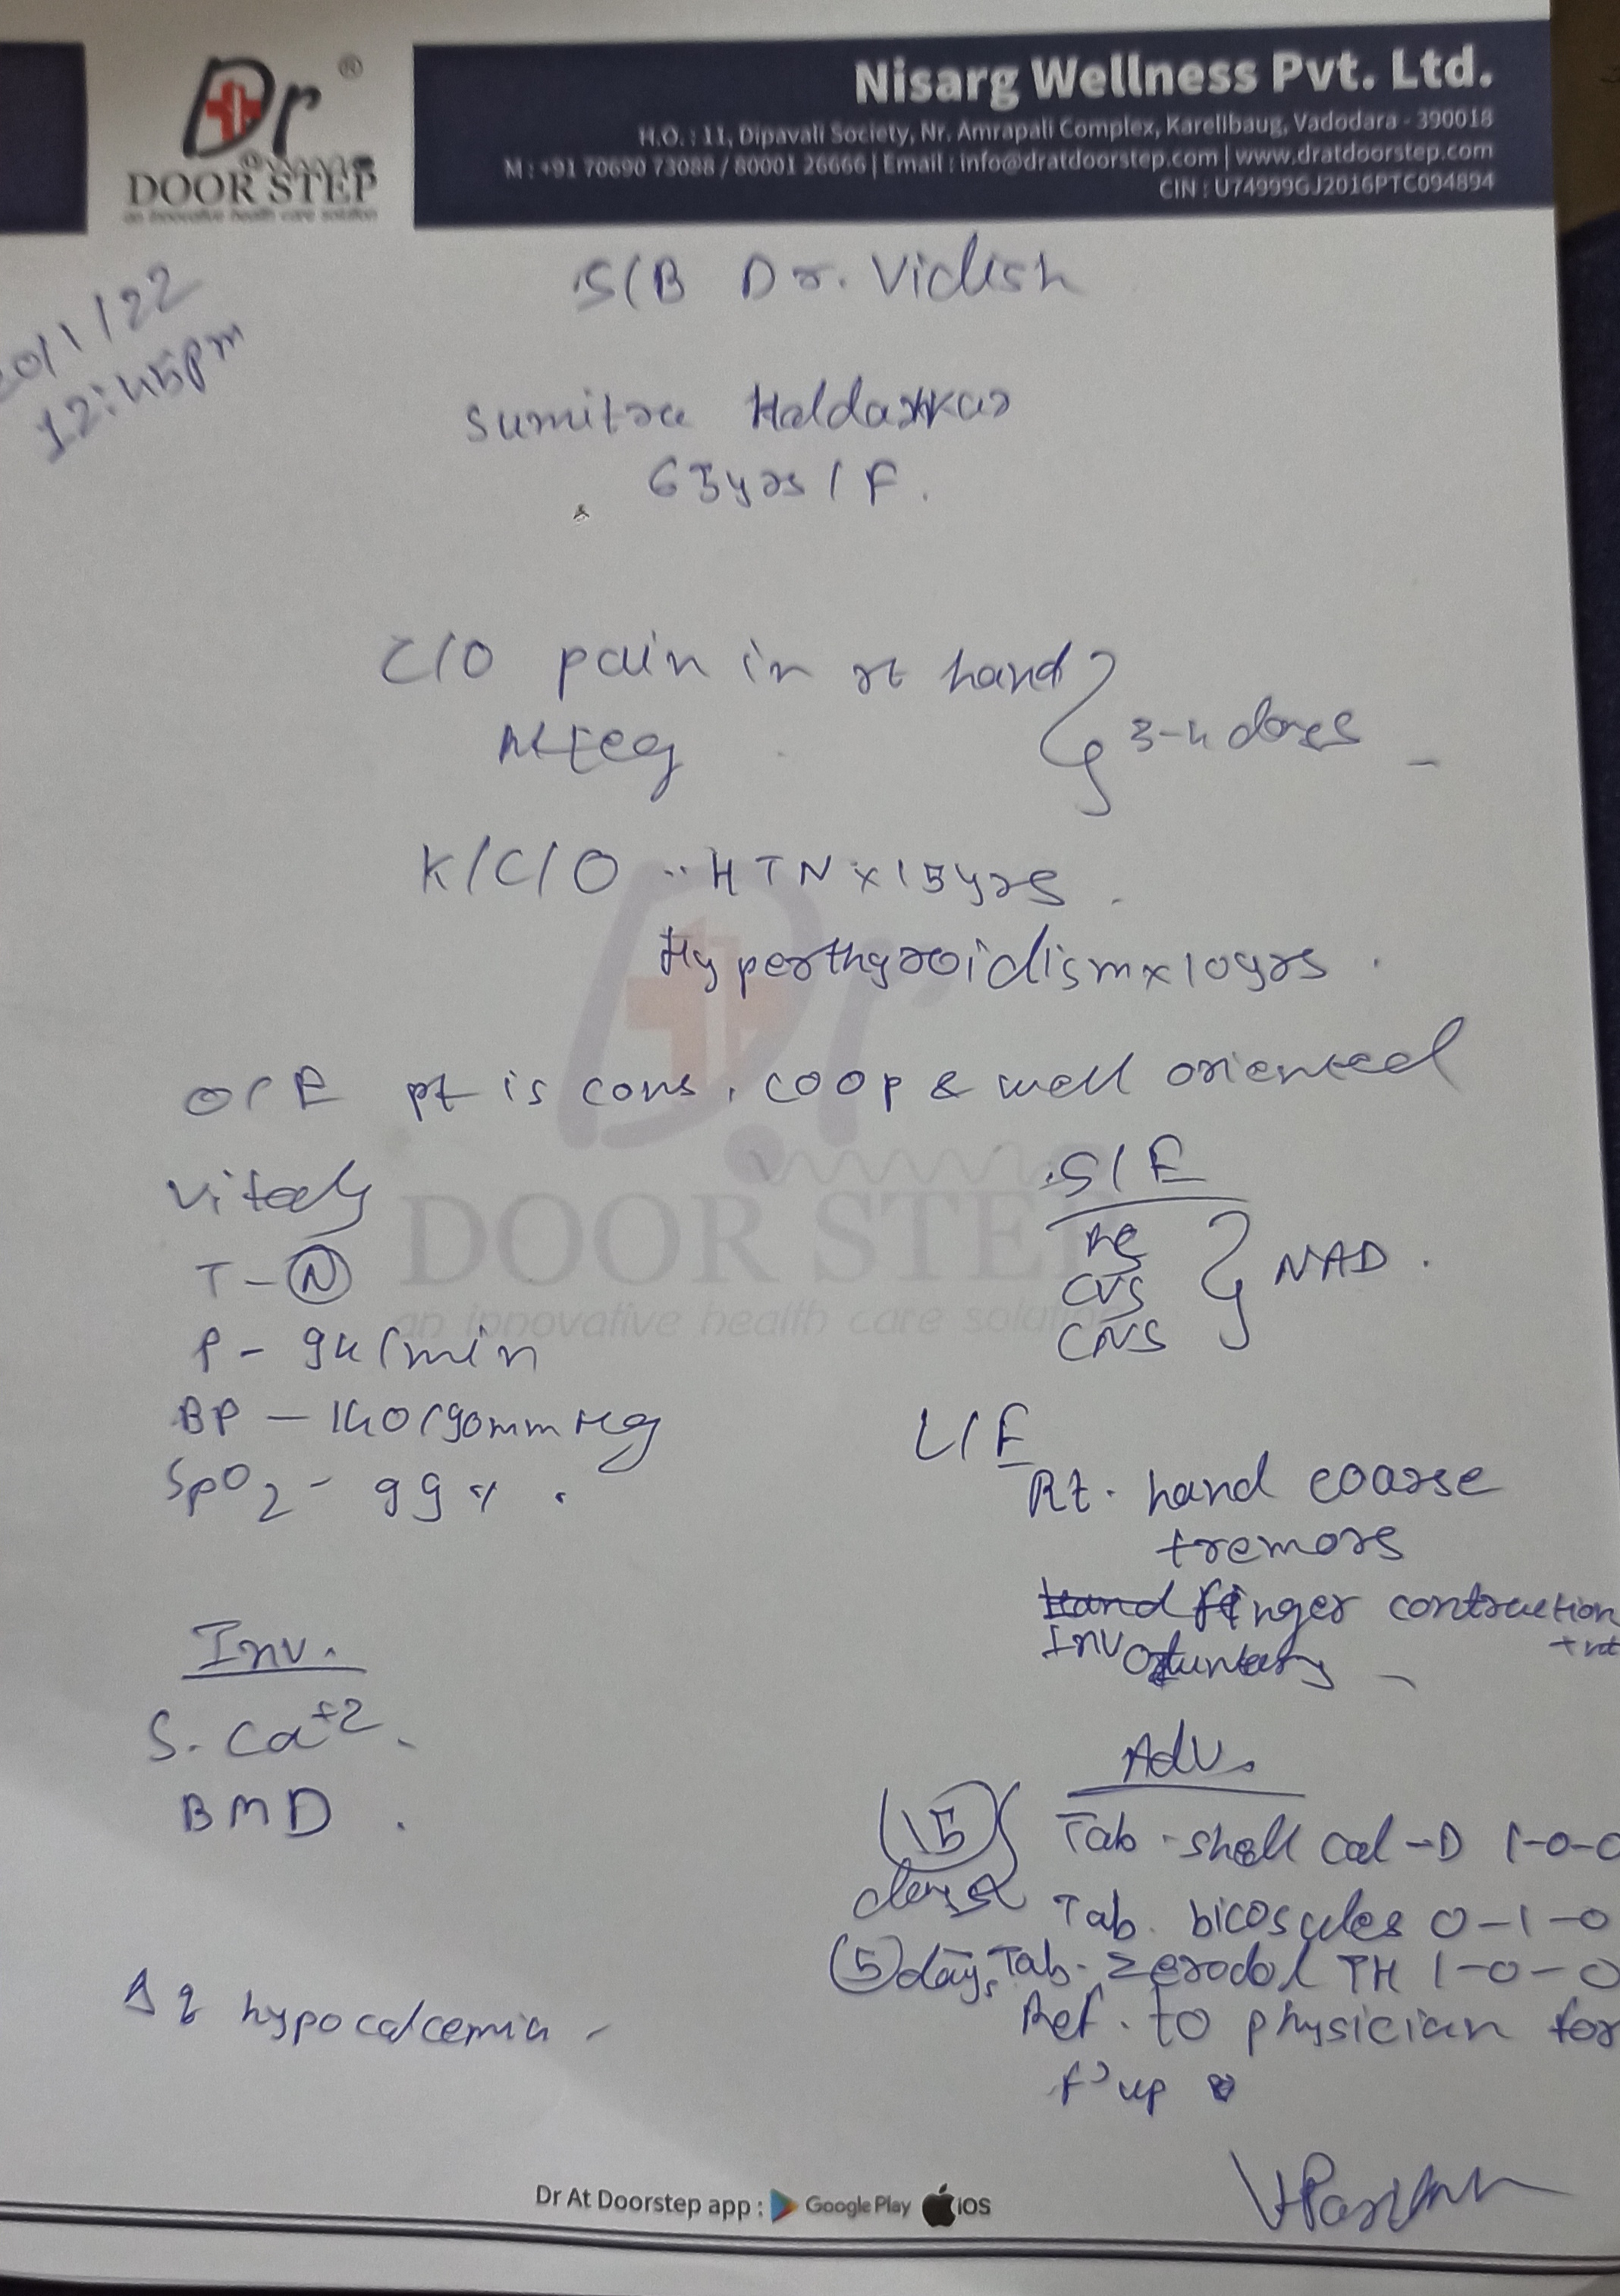 Dr ®
DOOR STEP
an innovative health care solution
Nisarg Wellness Pvt. Ltd.
H.O. : 11, Dipavali Society, Nr. Amrapali Complex, Karelibaug, Vadodara - 390018
M : +91 70690 73088 / 80001 26666 | Email : info@dratdoorstep.com | www.dratdoorstep.com
CIN : U74999GJ2016PTC094894
/1/22
12:45pm
S/B Dr. Vidish
Sumitra Haldankar
63yrs / F.
C/O pain in rt hand
3-4 days
K/C/O HTN x 15yrs.
Hyperthyroidism x 10yrs.
O/E pt is cons, coop & well oriented
Vitals
T - N
P - 94/min
BP - 140/90mmHg
SpO2 - 99%.
S/E
RS
CVS
CNS
NAD.
L/E
Rt. hand coarse
tremors
finger contraction
Involuntary
Inv.
S. Ca+2
BMD.
Adv.
15
days
Tab. shell cal-D 1-0-0
Tab. bicosules 0-1-0
5 days Tab. zerodol TH 1-0-0
Ref. to physician for
f'up
hypocalcemia
DOOR STEP
an innovative health care solution
Dr At Doorstep app : Google Play iOS